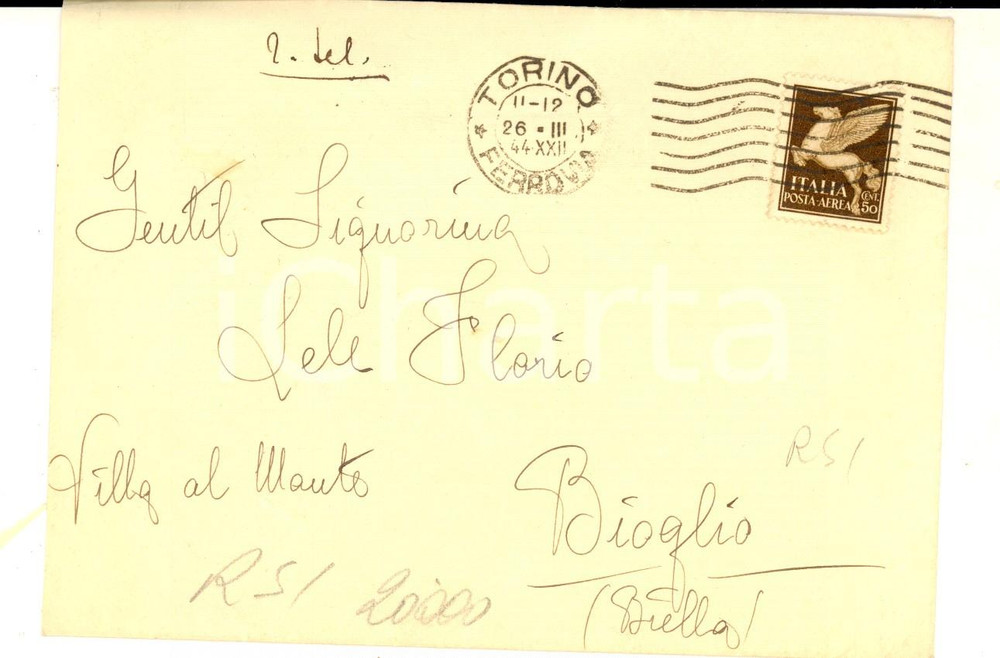 TORINO
11-12
26 • III
44•XXII
FERROVIA
ITALIA
POSTA-AEREA CENT. 50
Gentil Signorina
Lele Florio
Villa al Monte
Bioglio
(Biella)
RSI
RSI 20000
iCharta